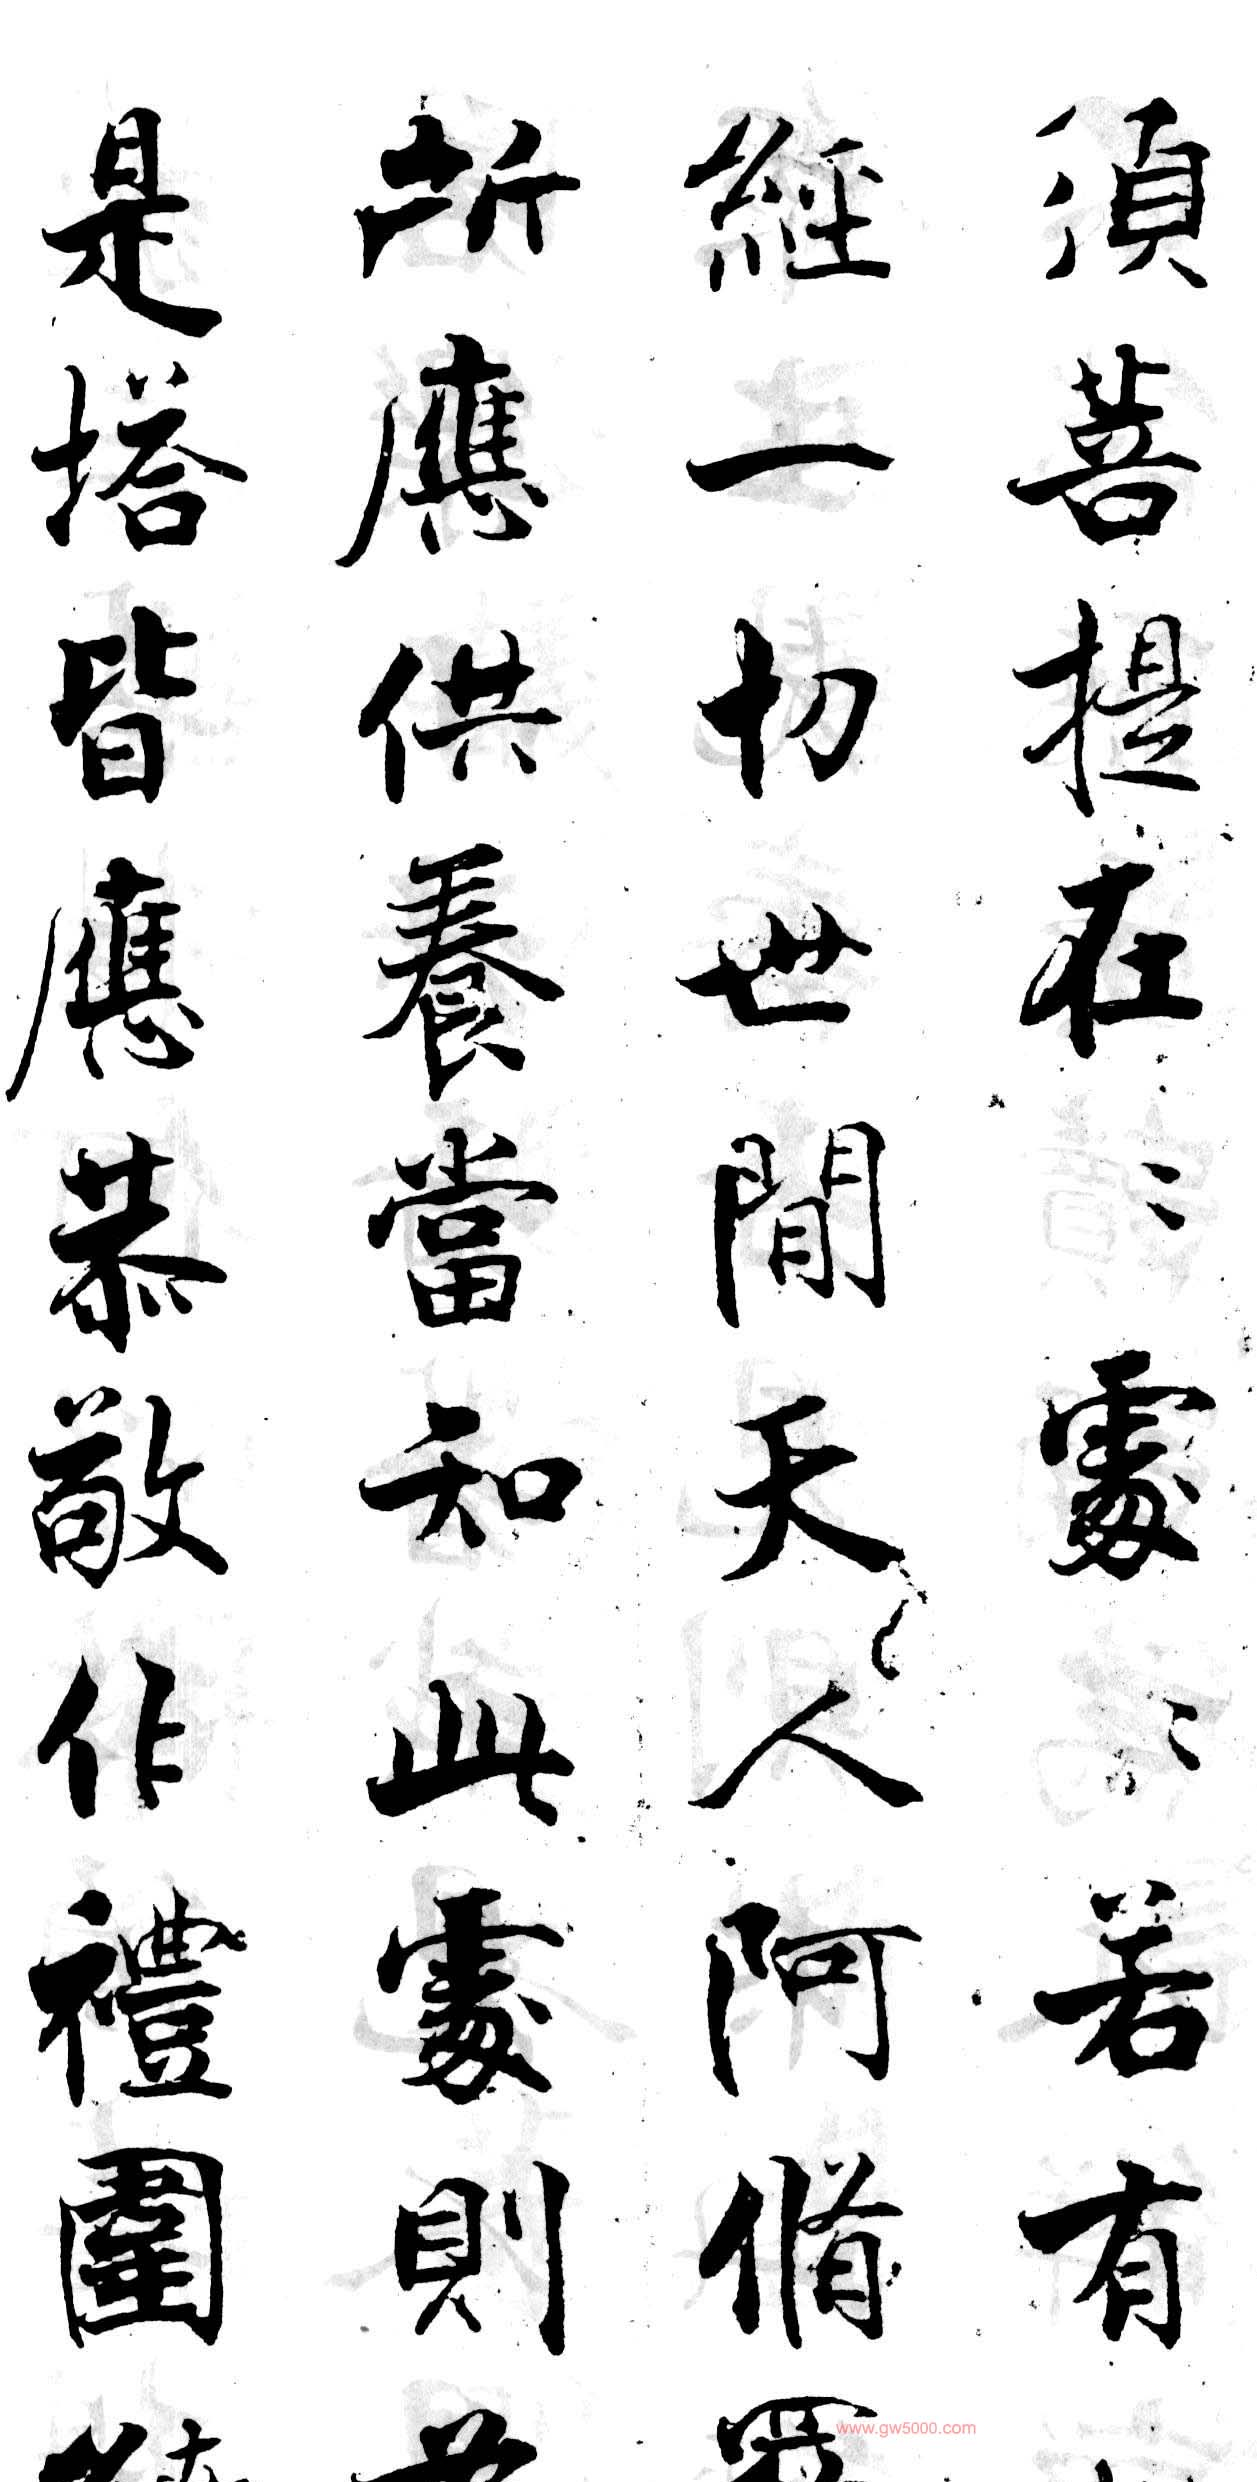 須菩提在〻處〻若有
經一切世間天人阿脩
所應供養當知此處則
是塔皆應恭敬作禮圍
www.gw5000.com